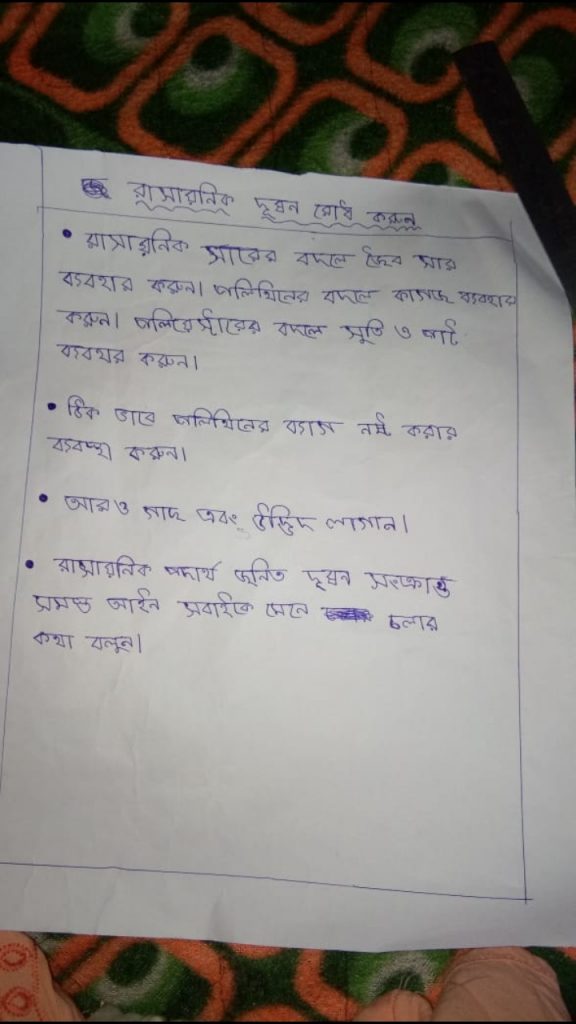 রাসায়নিক দূষন রোধ করুন
• রাসায়নিক সারের বদলে জৈব সার
ব্যবহার করুন। পলিথিনের বদলে কাগজ ব্যবহার
করুন। পলিয়েস্টারের বদলে সুতি ও পাট
ব্যবহার করুন।
• ঠিক ভাবে পলিথিনের ব্যাগ নষ্ট করার
ব্যবস্থা করুন।
• আরও গাছ এবং উদ্ভিদ লাগান।
• রাসায়নিক পদার্থ জনিত দূষন সংক্রান্ত
সমস্ত আইন সবাইকে মেনে চলার
কথা বলুন।